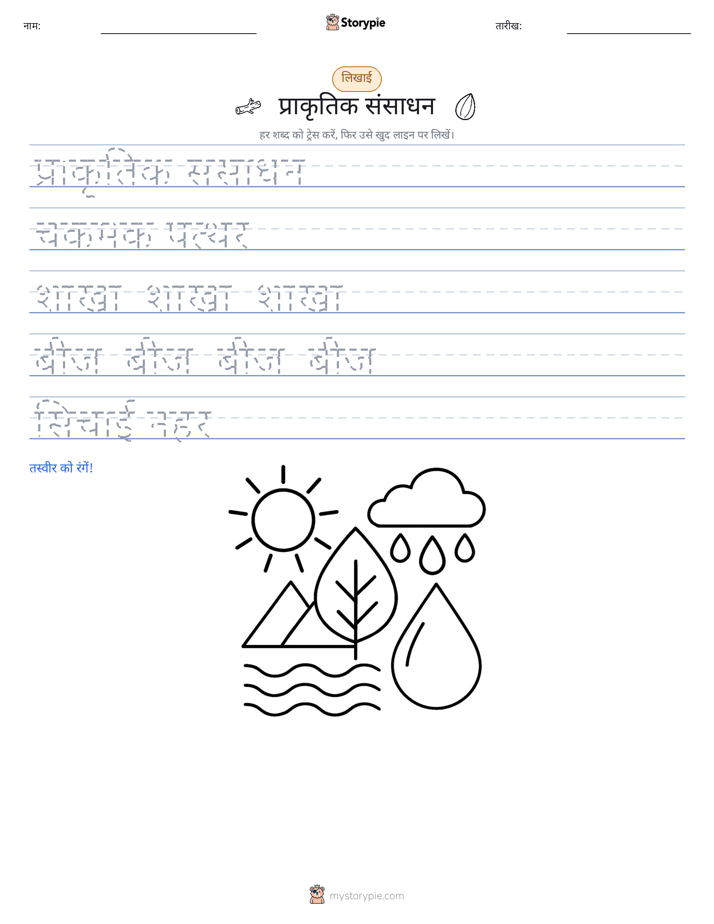 नाम:
Storypie
तारीख:
लिखाई
प्राकृतिक संसाधन
हर शब्द को ट्रेस करें, फिर उसे खुद लाइन पर लिखें।
प्राकृतिक संसाधन
चकमक पत्थर
शाखा शाखा शाखा
बीज बीज बीज बीज
सिंचाई नहर
तस्वीर को रंगें!
mystorypie.com